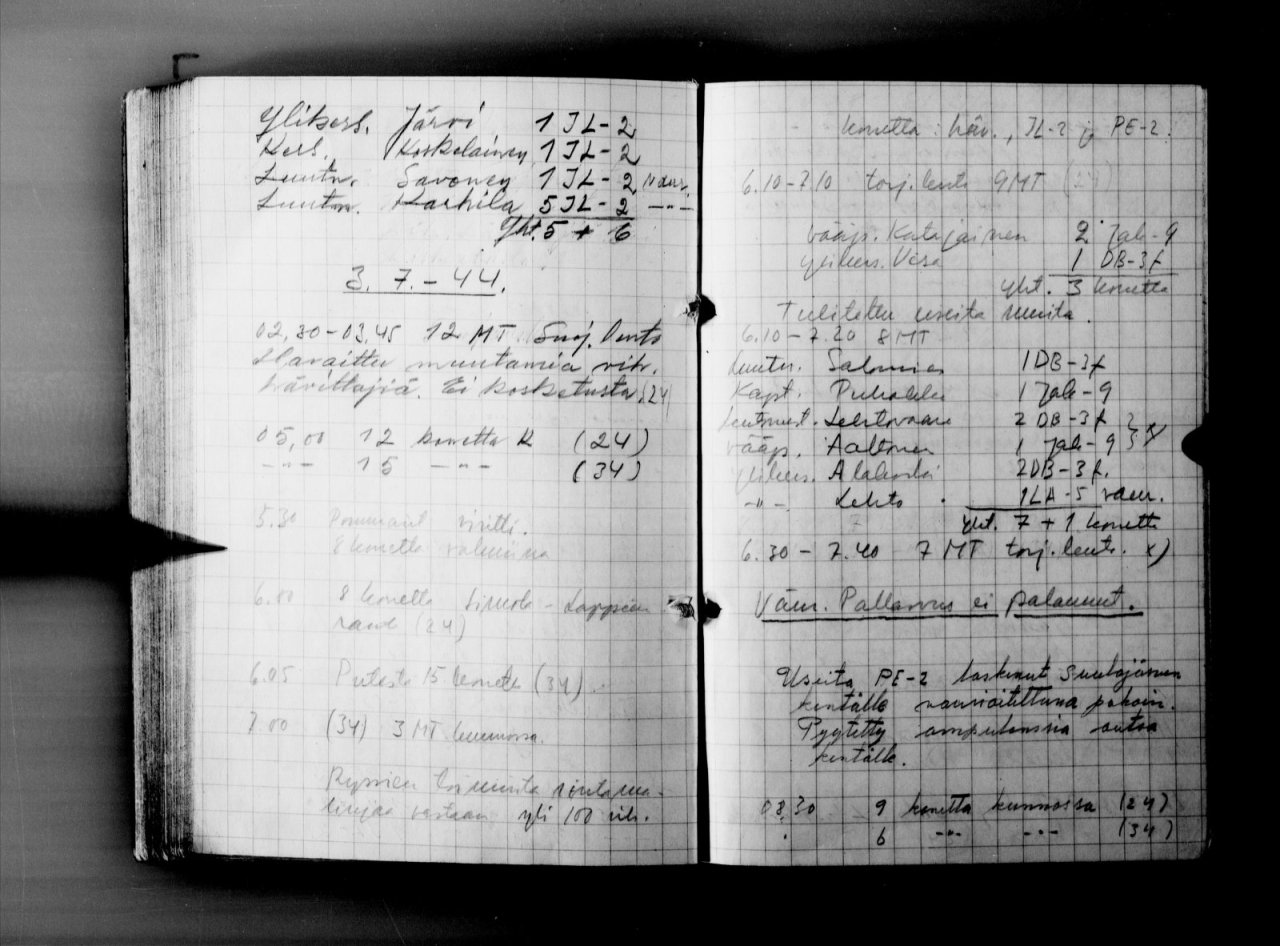 Ylikers. Järvi 1 JL-2
Kers. Koskelainen 1 JL-2
Luutn. Savonen 1 JL-2 vaur.
Luutn. Karhila 5 JL-2 -"-
Yht. 5 + 6
3. 7. - 44.
02,30-03,45 12 MT Suoj. lento
Havaittu muutamia vih.
hävittäjiä. Ei kosketusta. (24)
05,00 12 konetta K (24)
-"- 15 -"- (34)
5.30 Pommarit
8 konetta valmiina
6.00 8 konetta Simola - Lappeen
ranta (24)
6.05 15 konetta (34)
7.00 (34) 3 MT kunnossa.
Ryssien toiminta rintama-
linjaa vastaan yli 100 vih.
konetta: häv., JL-2 ja PE-2.
6.10-7.10 torj. lento 9 MT (24)
vääp. Katajainen 2 Jak-9
ylikers. Vesa 1 DB-3f
yht. 3 konetta
Tulitettu useita muita.
6.10-7.20 8 MT
Luutn. Salomies 1 DB-3f
Kapt. Puhakka 1 Jak-9
Lentomest. Lehtovaara 2 DB-3f
vääp. Aaltonen 1 Jak-9
ylikers. Alakoski 2 DB-3f.
-"- Lehto 1 LA-5 vaur.
yht. 7 + 1 konetta
6.30 - 7.40 7 MT torj. lento. x)
Vänr. Pallasvuo ei palannut.
Useita PE-2 laskenut Suulajärven
kentälle vaurioitettuna pakoin.
Pyydetty ambulanssia autoa
kentälle.
08.30 9 konetta kunnossa (24)
6 -"- -"- (34)